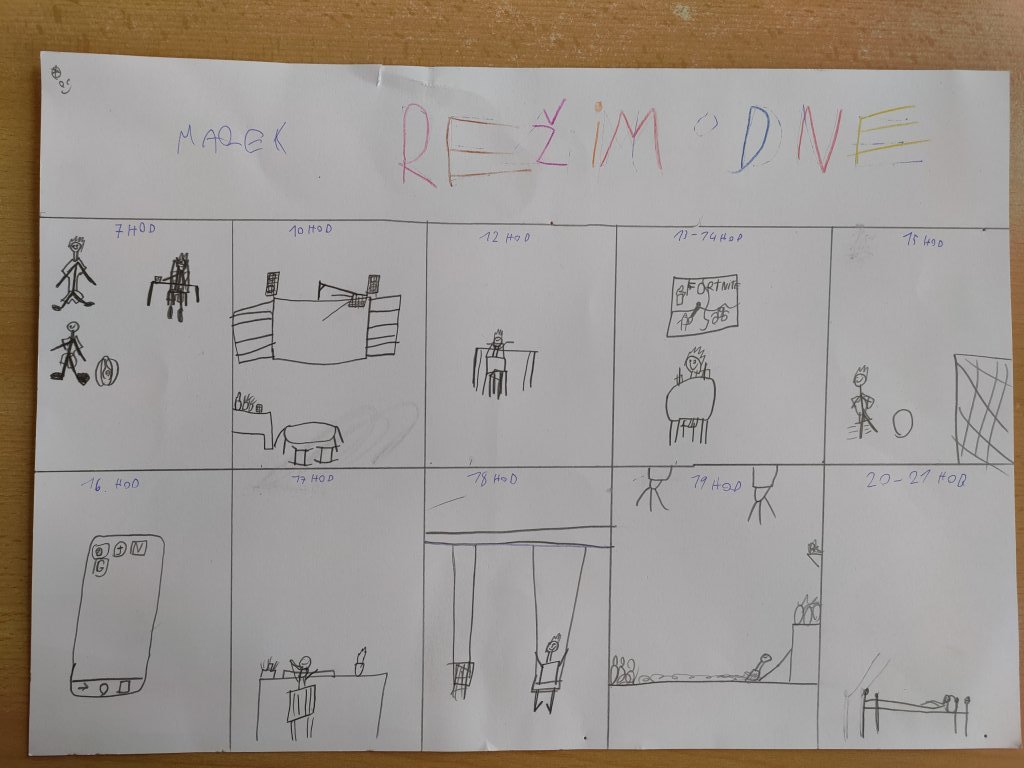 MAREK
REŽIM DNE
7 HOD
10 HOD
12 HOD
13-14 HOD
15 HOD
FORTNITE
16. HOD
17 HOD
18 HOD
19 HOD
20-21 HOD
N
G